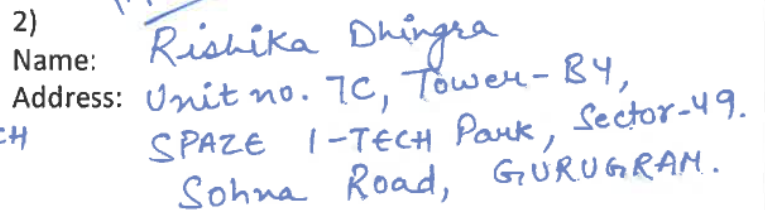 2)
Name: Rishika Dhingra
Address: Unit no. 7C, Tower-B4,
SPAZE I-TECH Park, Sector-49.
Sohna Road, GURUGRAM.